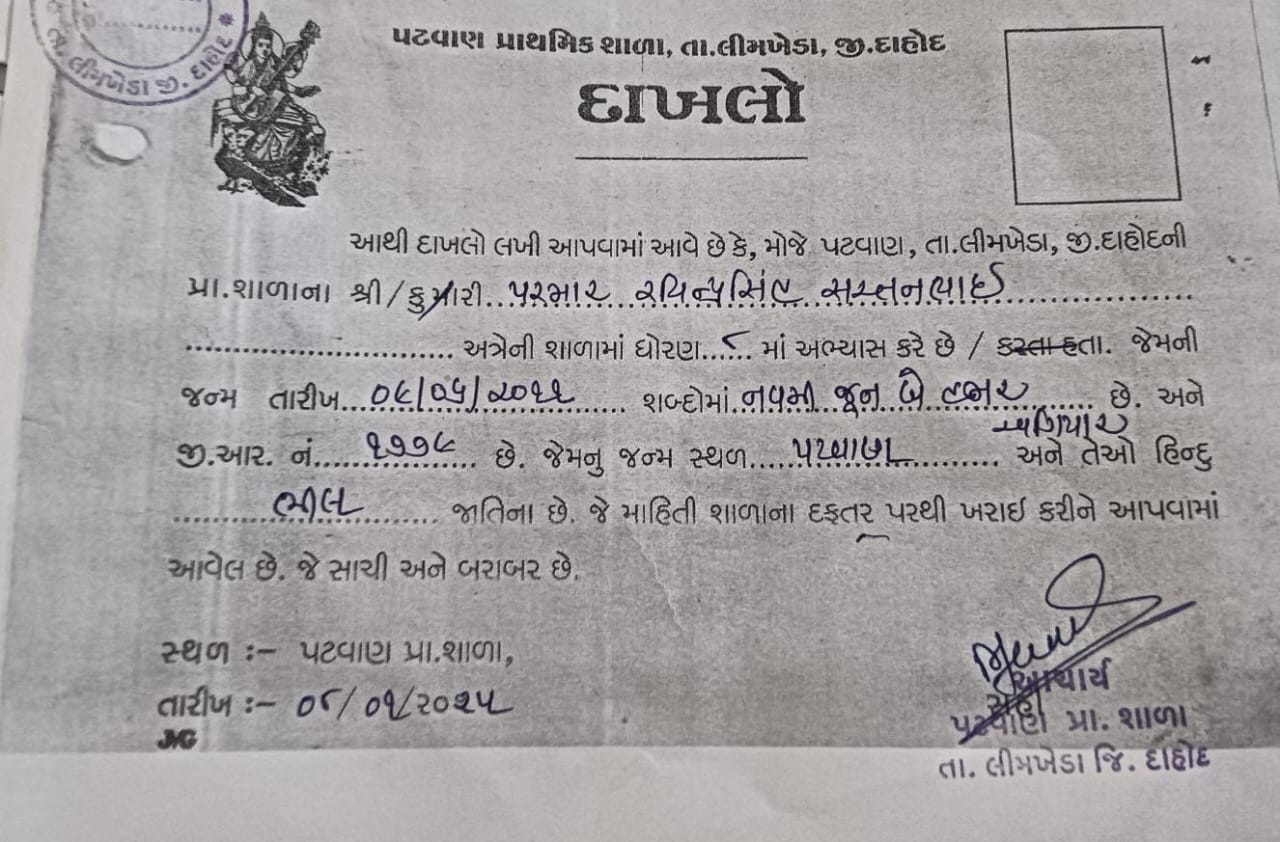 તા. લીમખેડા જી. દાહોદ *
પટવાણ પ્રાથમિક શાળા, તા.લીમખેડા, જી.દાહોદ
દાખલો
આથી દાખલો લખી આપવામાં આવે છે કે, મોજે પટવાણ, તા.લીમખેડા, જી.દાહોદની
પ્રા.શાળાના શ્રી / કુમારી..પરમાર રવિન્દ્રસિંહ સરતનભાઈ
અત્રેની શાળામાં ધોરણ...૮... માં અભ્યાસ કરે છે / કરતા હતા. જેમની
જન્મ તારીખ...૦૯/૦૬/૨૦૧૧ શબ્દોમાં નવમી જૂન બે હજાર છે. અને
અગિયાર
જી.આર. નં....૧૭૭૯ છે. જેમનુ જન્મ સ્થળ....પટવાણ અને તેઓ હિન્દુ
ભીલ જાતિના છે. જે માહિતી શાળાના દફતર પરથી ખરાઈ કરીને આપવામાં
આવેલ છે. જે સાચી અને બરાબર છે.
સ્થળ :– પટવાણ પ્રા.શાળા,
તારીખ :– ૦૮/૦૧/૨૦૨૫
JVG
આચાર્ય
પટવાણ પ્રા. શાળા
તા. લીમખેડા જિ. દાહોદ